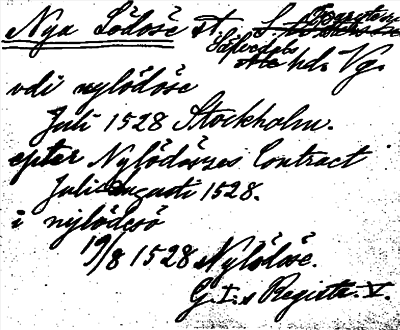 Nya Lödöse st.
Sävedals hd. Vg.
vdi nylödöse
Juli 1528 Stockholm.
epter Nylödöses Contract
Juli Augusti 1528.
i nylödesö
19/8 1528 Nylödöse.
G. I:s Registr. V.